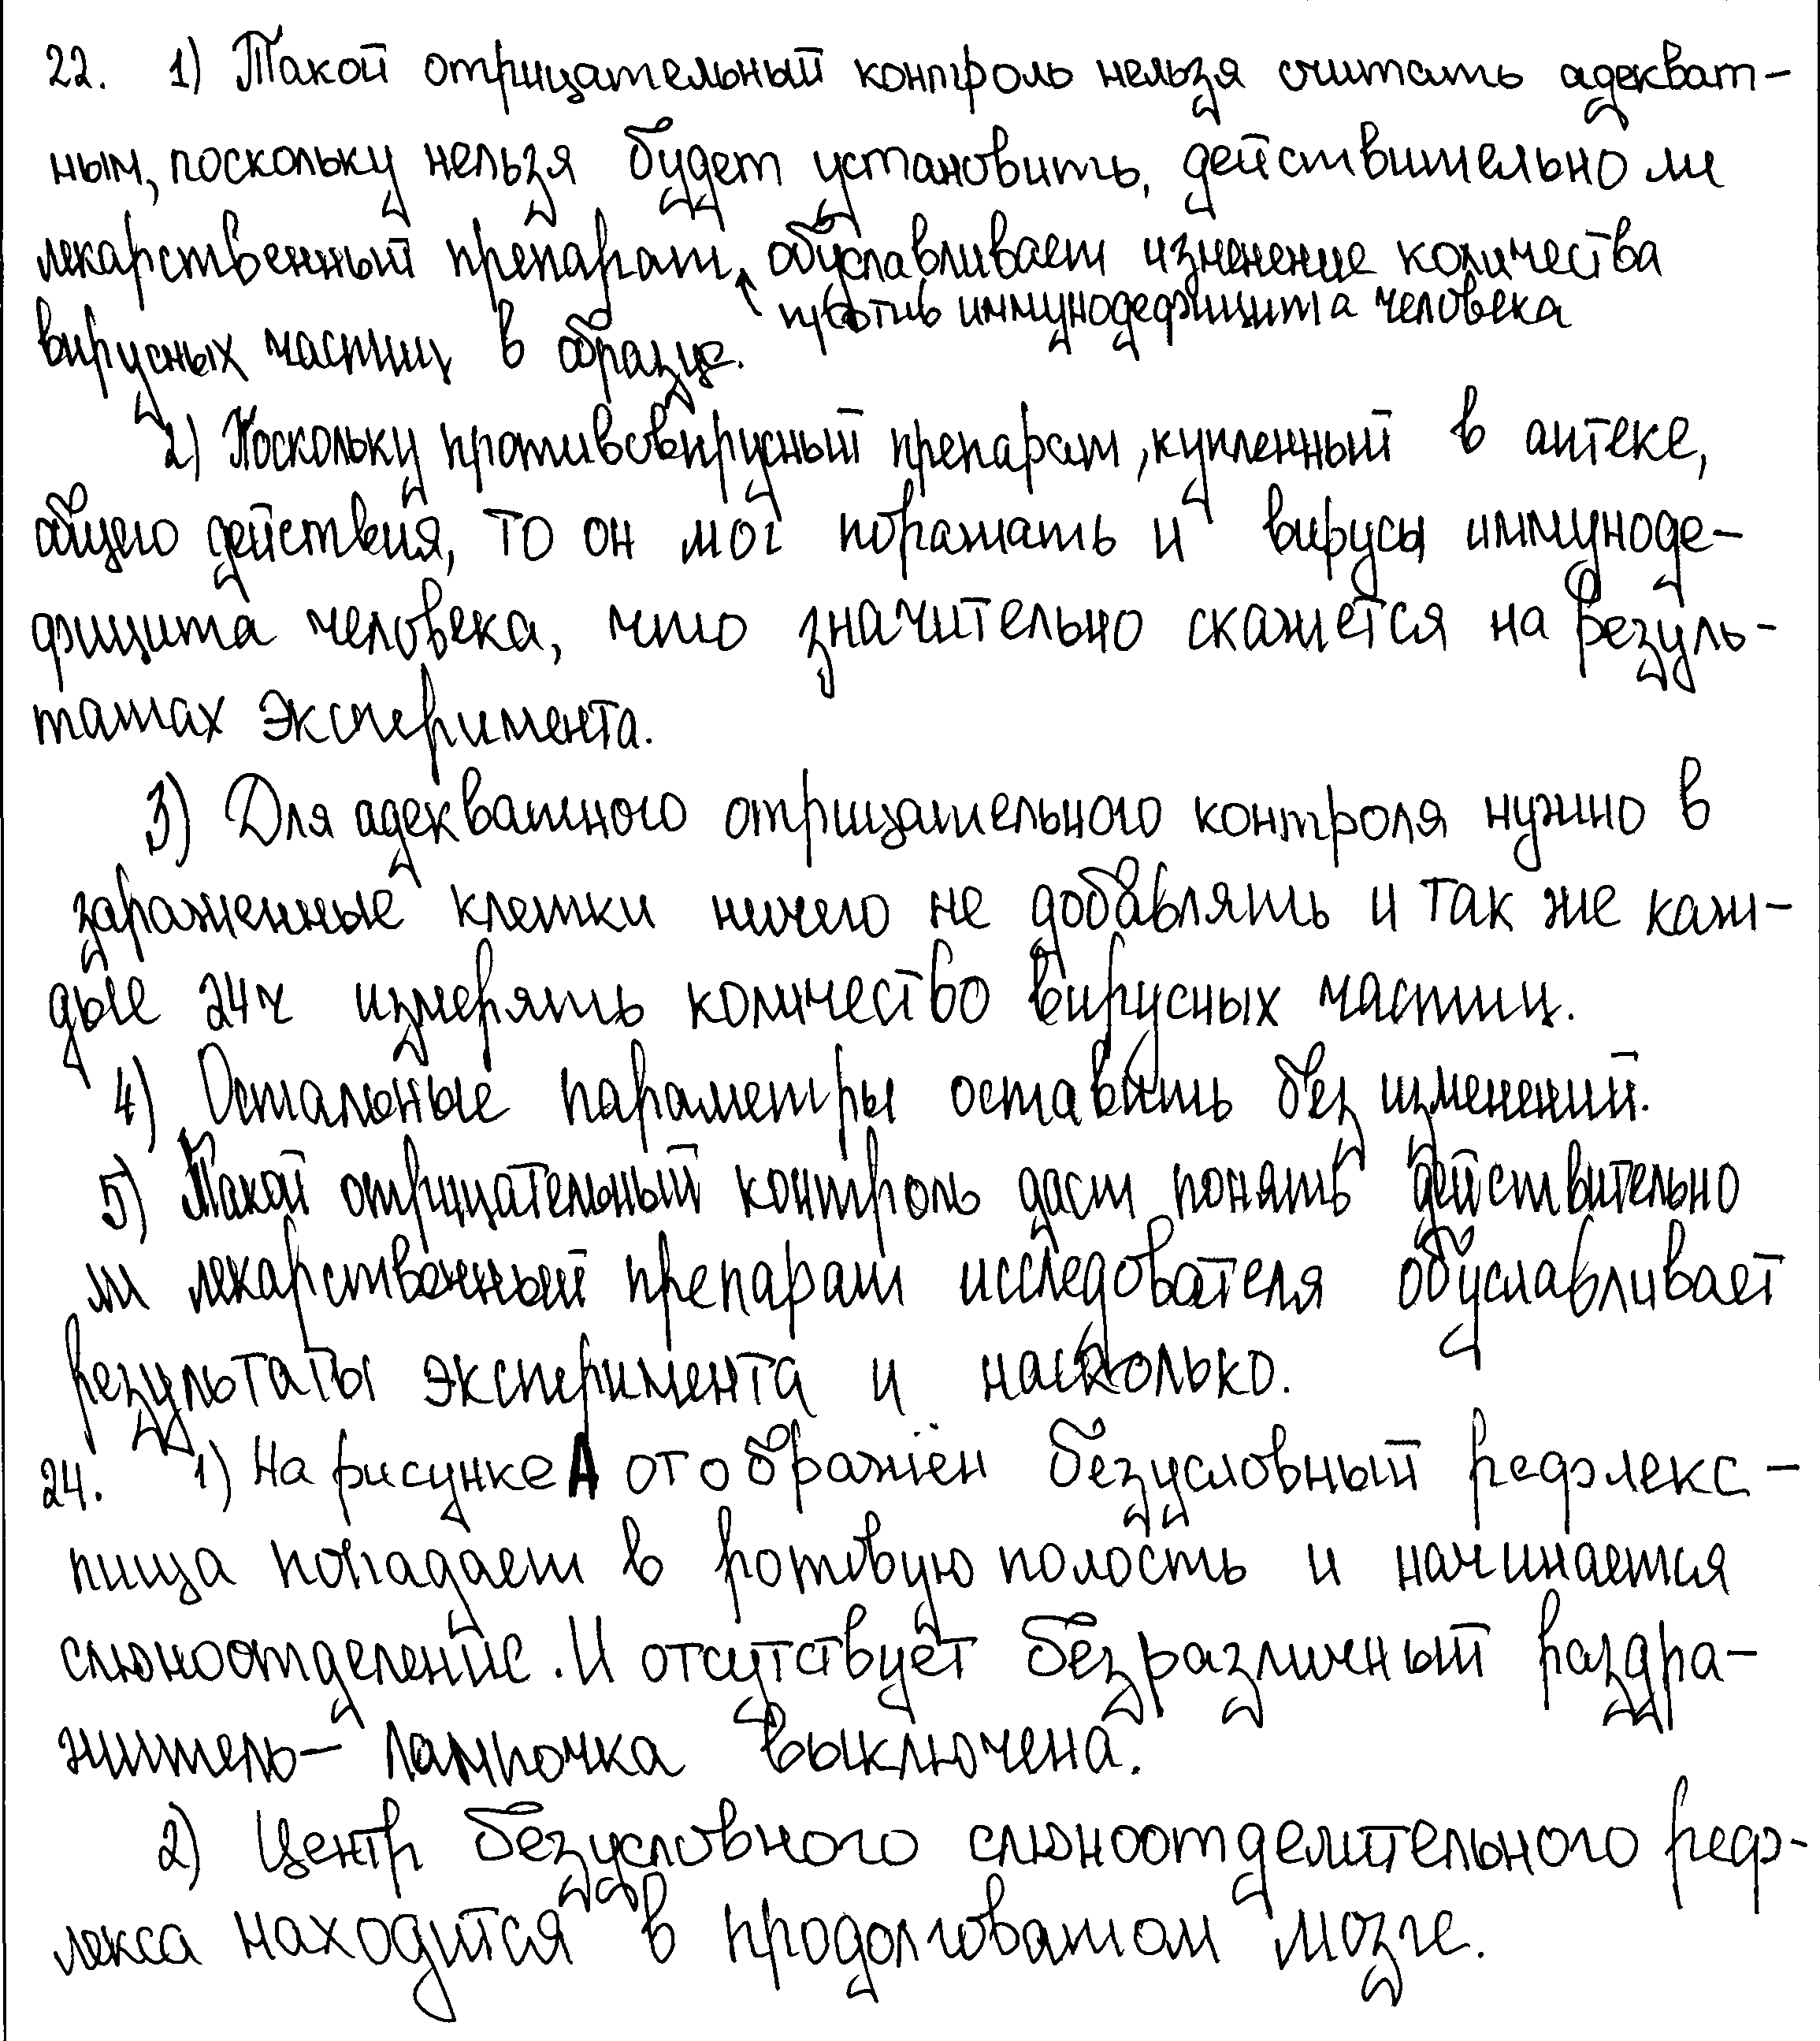 22. 1) Такой отрицательный контроль нельзя считать адекват-
ным, поскольку нельзя будет установить, действительно ли
лекарственный препарат обуславливает изменение количества
против иммунодефицита человека
вирусных частиц в образце.
2) Поскольку противовирусный препарат, купленный в аптеке,
общего действия, то он мог поражать и вирусы иммуноде-
фицита человека, что значительно скажется на резуль-
татах эксперимента.
3) Для адекватного отрицательного контроля нужно в
зараженные клетки ничего не добавлять и так же каж-
дые 24ч измерять количество вирусных частиц.
4) Остальные параметры оставить без изменений.
5) Такой отрицательный контроль даст понять действительно
ли лекарственный препарат исследователя обуславливает
результаты эксперимента и насколько.
24. 1) На рисунке А отображён безусловный рефлекс -
пища попадает в ротовую полость и начинается
слюноотделение. И отсутствует безразличный раздра-
житель - лампочка выключена.
2) Центр безусловного слюноотделительного реф-
лекса находится в продолговатом мозге.